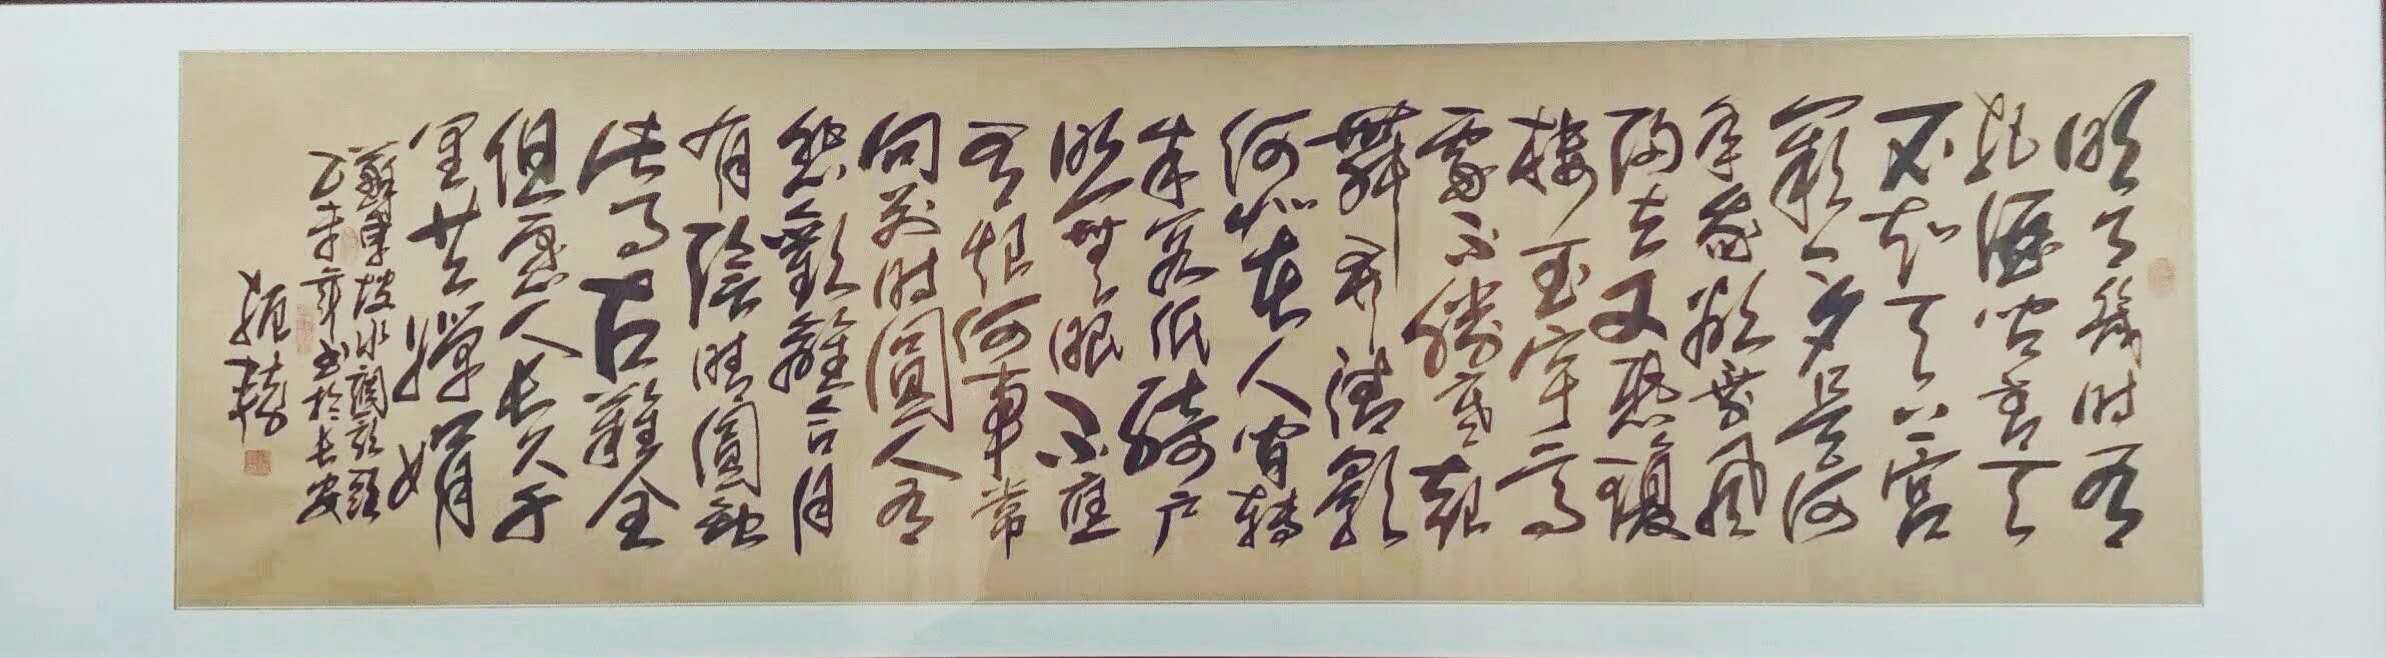 明月幾時有
把酒問青天
不知天上宮
闕今夕是何
年我欲乘風
歸去又恐瓊
樓玉宇高
處不勝寒起
舞弄清影
何似在人間轉
朱閣低綺戶
照無眠不應
有恨何事常
向別時圓人有
悲歡離合月
有陰晴圓缺
此事古難全
但願人長久千
里共嬋娟
蘇東坡水調歌頭
乙未年書於長安